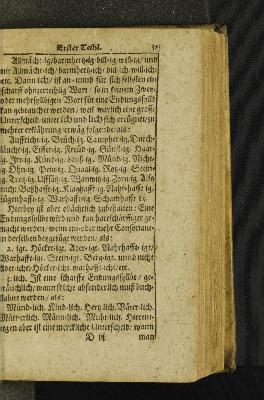 Erster Teihl. 37
Allmäch-ig/barmhertz-ig/bill-ig/will-ig/ und
nit Allmächt-ich/ barmhertz-ich/ bill-ich will-ich/
etc. Dann ich/ ist an-und für sich selbsten ein
scharff ohnzertheilig Wort/ so in seinem Zwey-
oder mehrsylbigen Wort für eine Endungssylb
kan gebrauchet werden/ weil warlich eine grosse
Unterscheid unter lich und lich sich ereugnet/ zu
mehrer erklährung erwäg folgende als:
Auffricht-ig. Brüch-ig. Campher-ig. Durch-
läucht-ig. Eiffer-ig. Freud-ig. Günst-ig. Haar-
ig. Irr-ig. Künd-ig. Münd-ig. Nicht-
ig. Ohn-ig. Pein-ig. Quaal-ig. Rotz-ig. Stein-
ig. Trotz-ig. Uffsätz-ig. Wanwitz-ig. Zorn-ig. Als
auch Boßhafft-ig. Klaghafft-ig. Nahrhafft-ig.
Lügenhafft-ig. Warhafft-ig. Schamhafft-ig.
Hierbey ist aber obächtlich zubehalten: Eine
Endungssylbe wird aus kan hart schärffiger ge-
machet werden/ wenn ein oder mehr Consonanten
in derselben beygefüget werden/ als:
2. igt. Höcker-igt. Ader-igt. Nahrhafft-igt/
Warhafft-igt. Stein-igt. Berg-igt. unnd nicht
Ader-icht/ Höcker-icht. warhafft-icht/ etc.
3. lich. Ist eine scharffe Endungssylbe/ ge-
bräuchlich/ wann solche absonderlich muß buch-
stabiret werden/ als:
Münd-lich. Kind-lich. Hertz-lich. Väter-lich.
Mütter-lich. Männ-lich. Müht-lich. Hierent-
gegen aber ist eine merckliche Unterscheid/ wann
D iij man